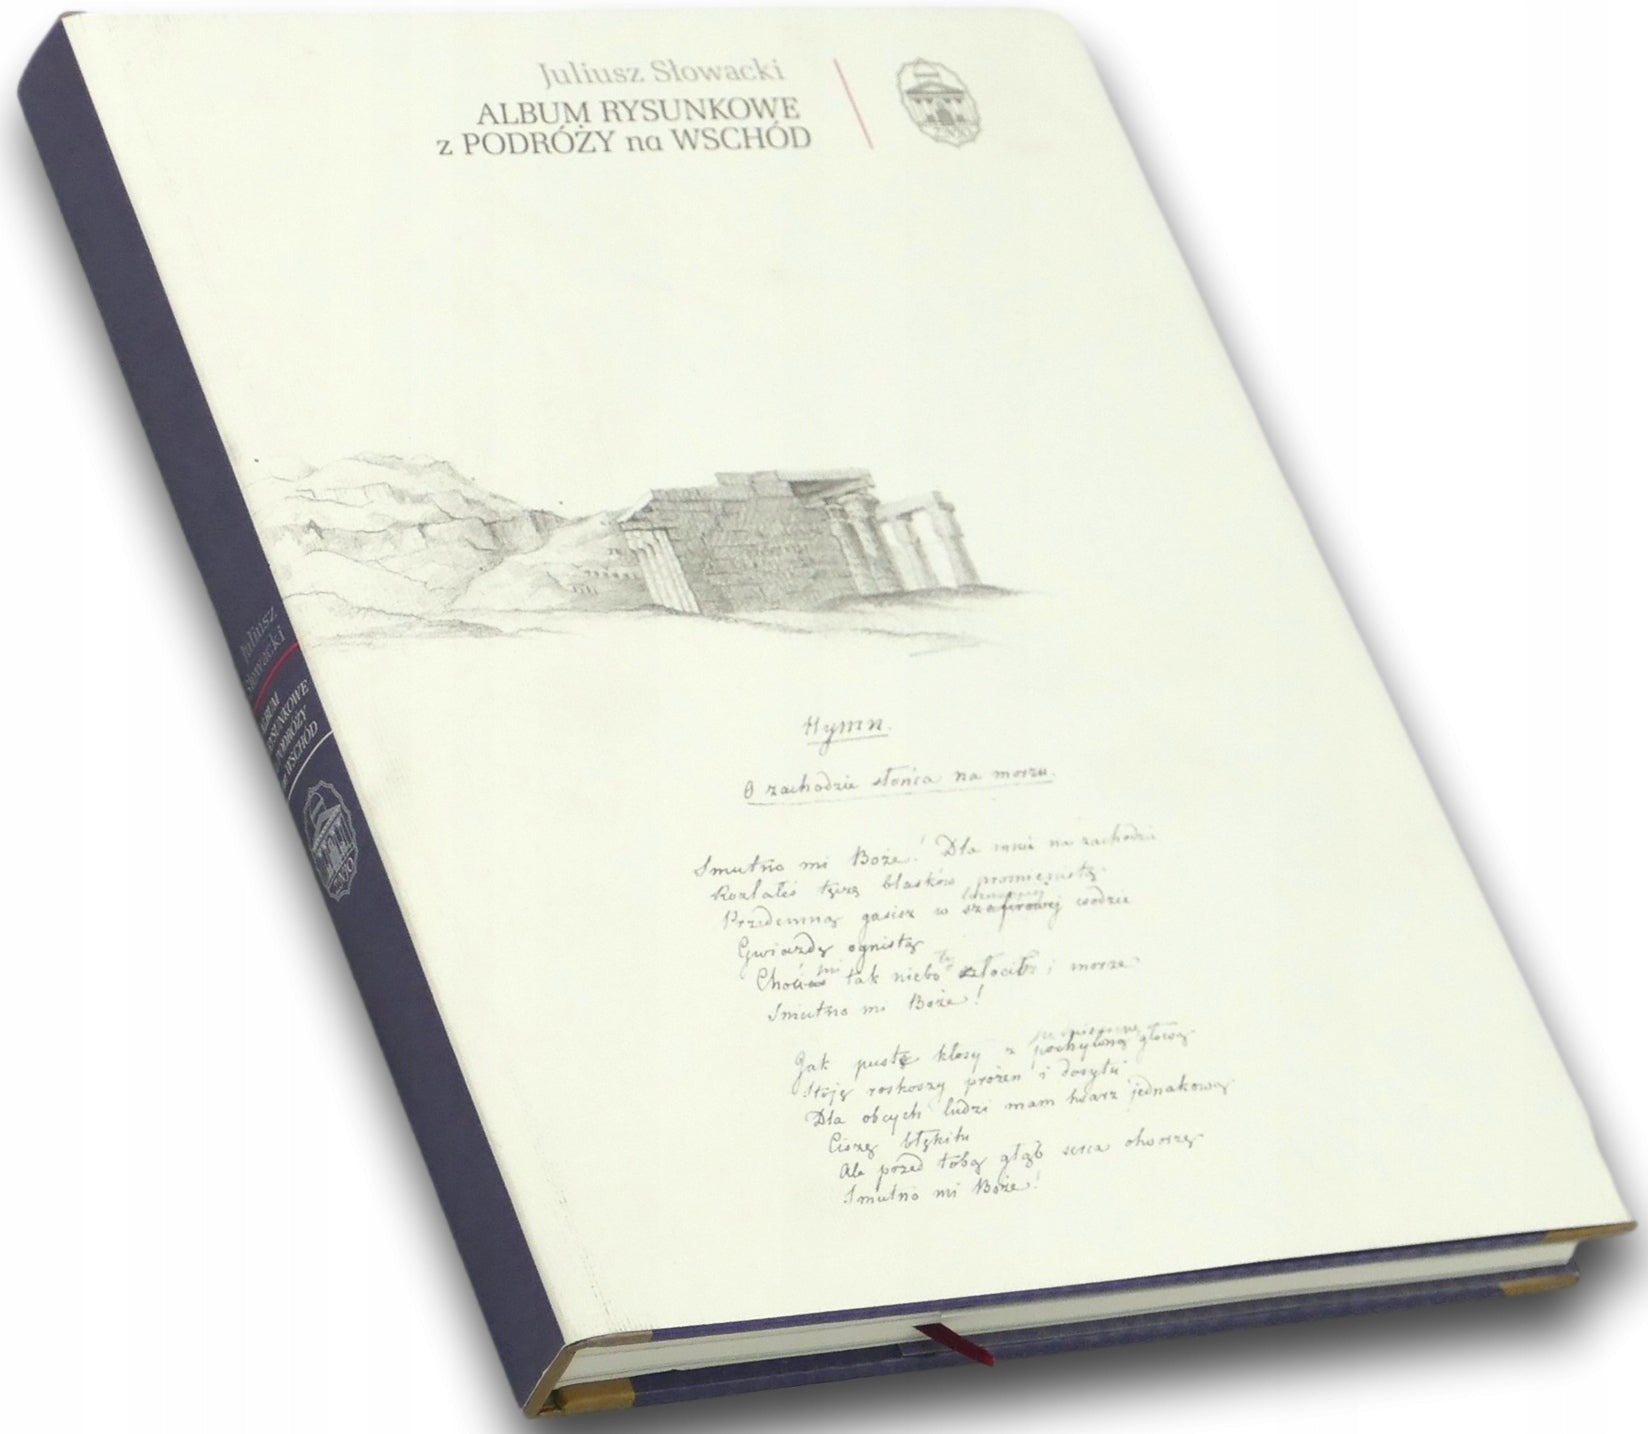 Juliusz Słowacki
ALBUM RYSUNKOWE
z PODRÓŻY na WSCHÓD
Juliusz
Słowacki
ALBUM
RYSUNKOWE
z PODRÓŻY
na WSCHÓD
Hymn.
O zachodzie słońca na morzu.
Smutno mi Boże! Dla mnie na zachodzie
Rozlałeś tęczę blasków promienistą
Przedemną gasisz w szafirowej wodzie
Gwiazdę ognistą
Choć mi tak niebo ty złocisz i morze
Smutno mi Boże!
Jak puste kłosy z pochyloną głową
Stoję roskoszy prożen i dosytu
Dla obcych ludzi mam twarz jednakową
Ciszę błękitu
Ale przed tobą głąb serca otworzę
Smutno mi Boże!